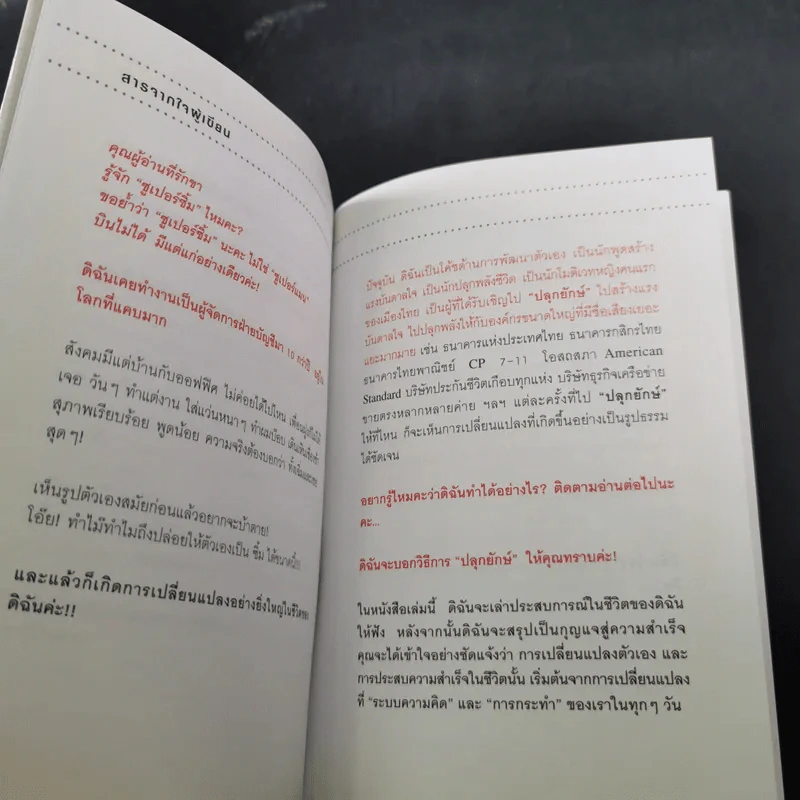 สารจากใจผู้เขียน
คุณผู้อ่านที่รักขา
รู้จัก "ซูเปอร์ซิ้ม" ไหมคะ?
ขอย้ำว่า "ซูเปอร์ซิ้ม" นะคะ ไม่ใช่ "ซูเปอร์แมน"
บินไม่ได้ มีแต่แก่อย่างเดียวค่ะ!
ดิฉันเคยทำงานเป็นผู้จัดการฝ่ายบัญชีมา 10 กว่าปี
โลกที่แคบมาก
สังคมมีแต่บ้านกับออฟฟิศ ไม่ค่อยได้ไปไหน
เจอ วันๆ ทำแต่งาน ใส่แว่นหนาๆ ทำผมบ๊อบ
สุภาพเรียบร้อย พูดน้อย ความจริงต้องบอกว่า
สุดๆ!
เห็นรูปตัวเองสมัยก่อนแล้วอยากจะบ้าตาย!
โอ๊ย! ทำไม๊ทำไมถึงปล่อยให้ตัวเองเป็น ซิ้ม ได้ขนาดนี้!!
และแล้วก็เกิดการเปลี่ยนแปลงอย่างยิ่งใหญ่ในชีวิตของ
ดิฉันค่ะ!!
ปัจจุบัน ดิฉันเป็นโค้ชด้านการพัฒนาตัวเอง เป็นนักพูดสร้าง
แรงบันดาลใจ เป็นนักปลุกพลังชีวิต เป็นนักโมติเวทหญิงคนแรก
ของเมืองไทย เป็นผู้ที่ได้รับเชิญไป "ปลุกยักษ์" ไปสร้างแรง
บันดาลใจ ไปปลุกพลังให้กับองค์กรขนาดใหญ่ที่มีชื่อเสียงเยอะ
แยะมากมาย เช่น ธนาคารแห่งประเทศไทย ธนาคารกสิกรไทย
ธนาคารไทยพาณิชย์ CP 7-11 โอสถสภา American
Standard บริษัทประกันชีวิตเกือบทุกแห่ง บริษัทธุรกิจเครือข่าย
ขายตรงหลากหลายค่าย ฯลฯ แต่ละครั้งที่ไป "ปลุกยักษ์"
ให้ที่ไหน ก็จะเห็นการเปลี่ยนแปลงที่เกิดขึ้นอย่างเป็นรูปธรรม
ได้ชัดเจน
อยากรู้ไหมคะว่าดิฉันทำได้อย่างไร? ติดตามอ่านต่อไปนะ
คะ...
ดิฉันจะบอกวิธีการ "ปลุกยักษ์" ให้คุณทราบค่ะ!
ในหนังสือเล่มนี้ ดิฉันจะเล่าประสบการณ์ในชีวิตของดิฉัน
ให้ฟัง หลังจากนั้นดิฉันจะสรุปเป็นกุญแจสู่ความสำเร็จ
คุณจะได้เข้าใจอย่างชัดแจ้งว่า การเปลี่ยนแปลงตัวเอง และ
การประสบความสำเร็จในชีวิตนั้น เริ่มต้นจากการเปลี่ยนแปลง
ที่ "ระบบความคิด" และ "การกระทำ" ของเราในทุกๆ วัน